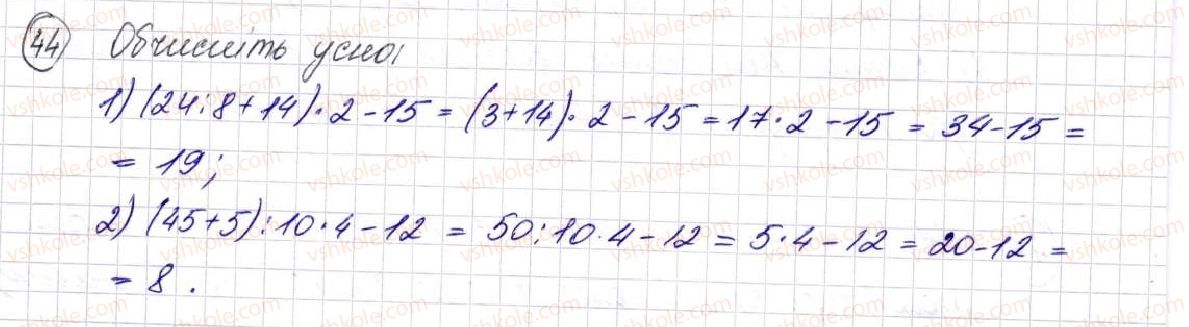 44 Обчисліть усно:
1) (24:8+14)·2-15=(3+14)·2-15=17·2-15=34-15=
=19;
2) (45+5):10·4-12=50:10·4-12=5·4-12=20-12=
=8.
vshkole.com